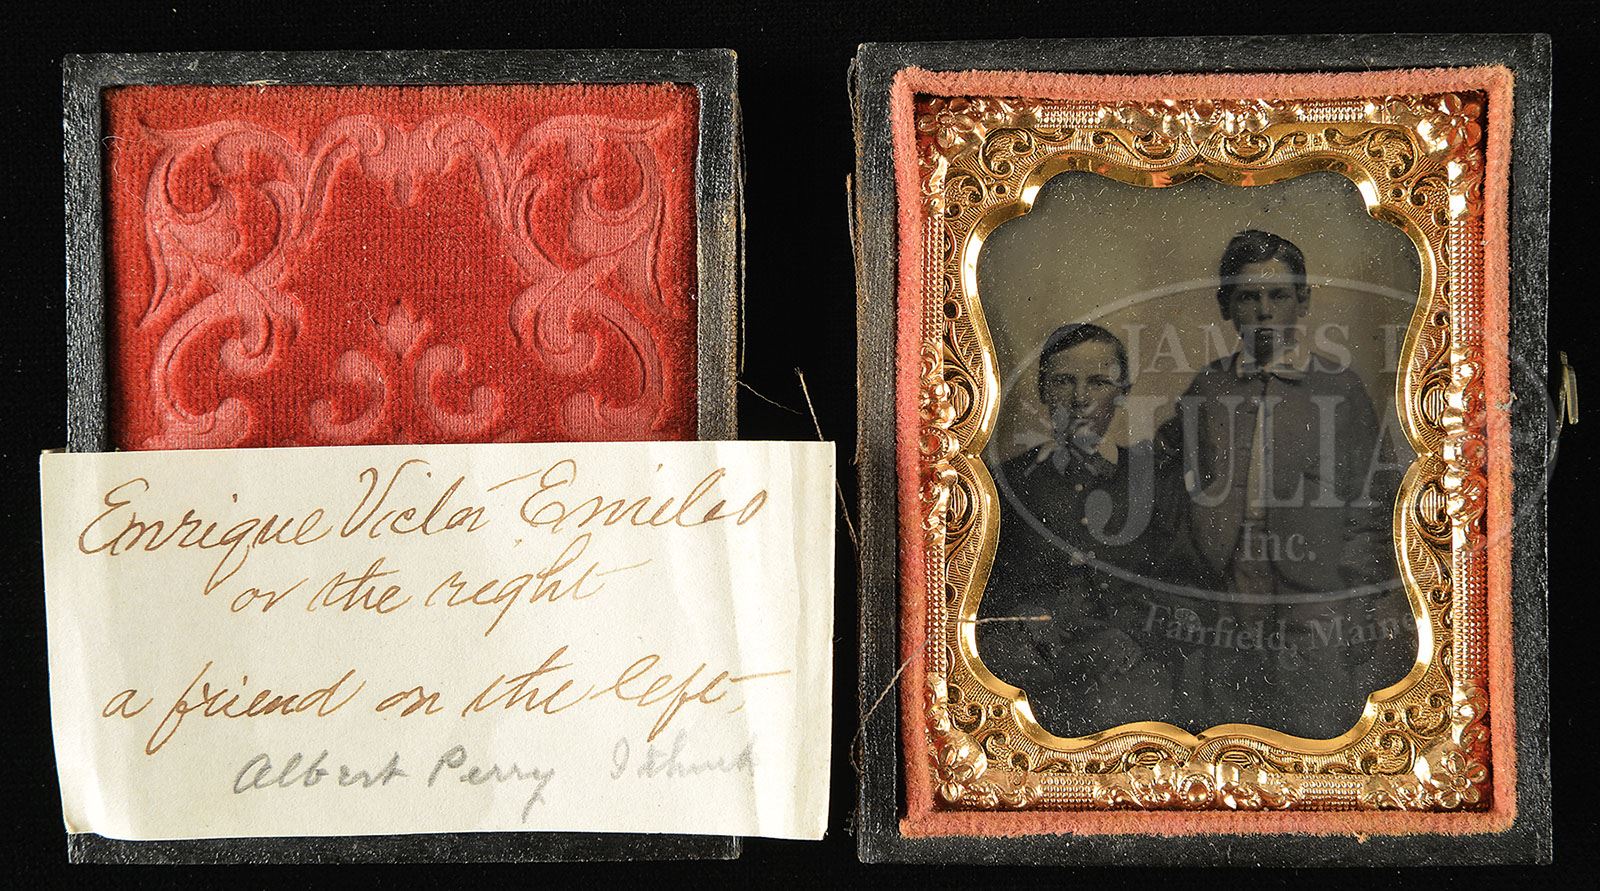 Enrique Victor Emileo
on the right
a friend on the left,
Albert Perry I think
JAMES D.
JULIA
Inc.
Fairfield, Maine